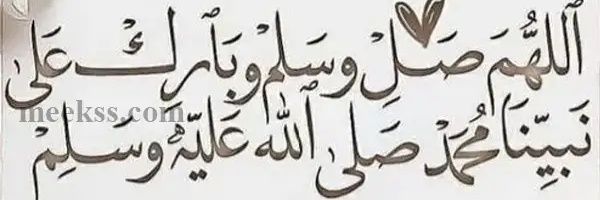 اَللّٰهُمَ صَلِ وسَلِمْ وبَارِكْ عَلى
نَبِيِّنَا مُحَمَدْ صَلى اللّٰه عَلَيّهِ وسَلِمْ
meekss.com